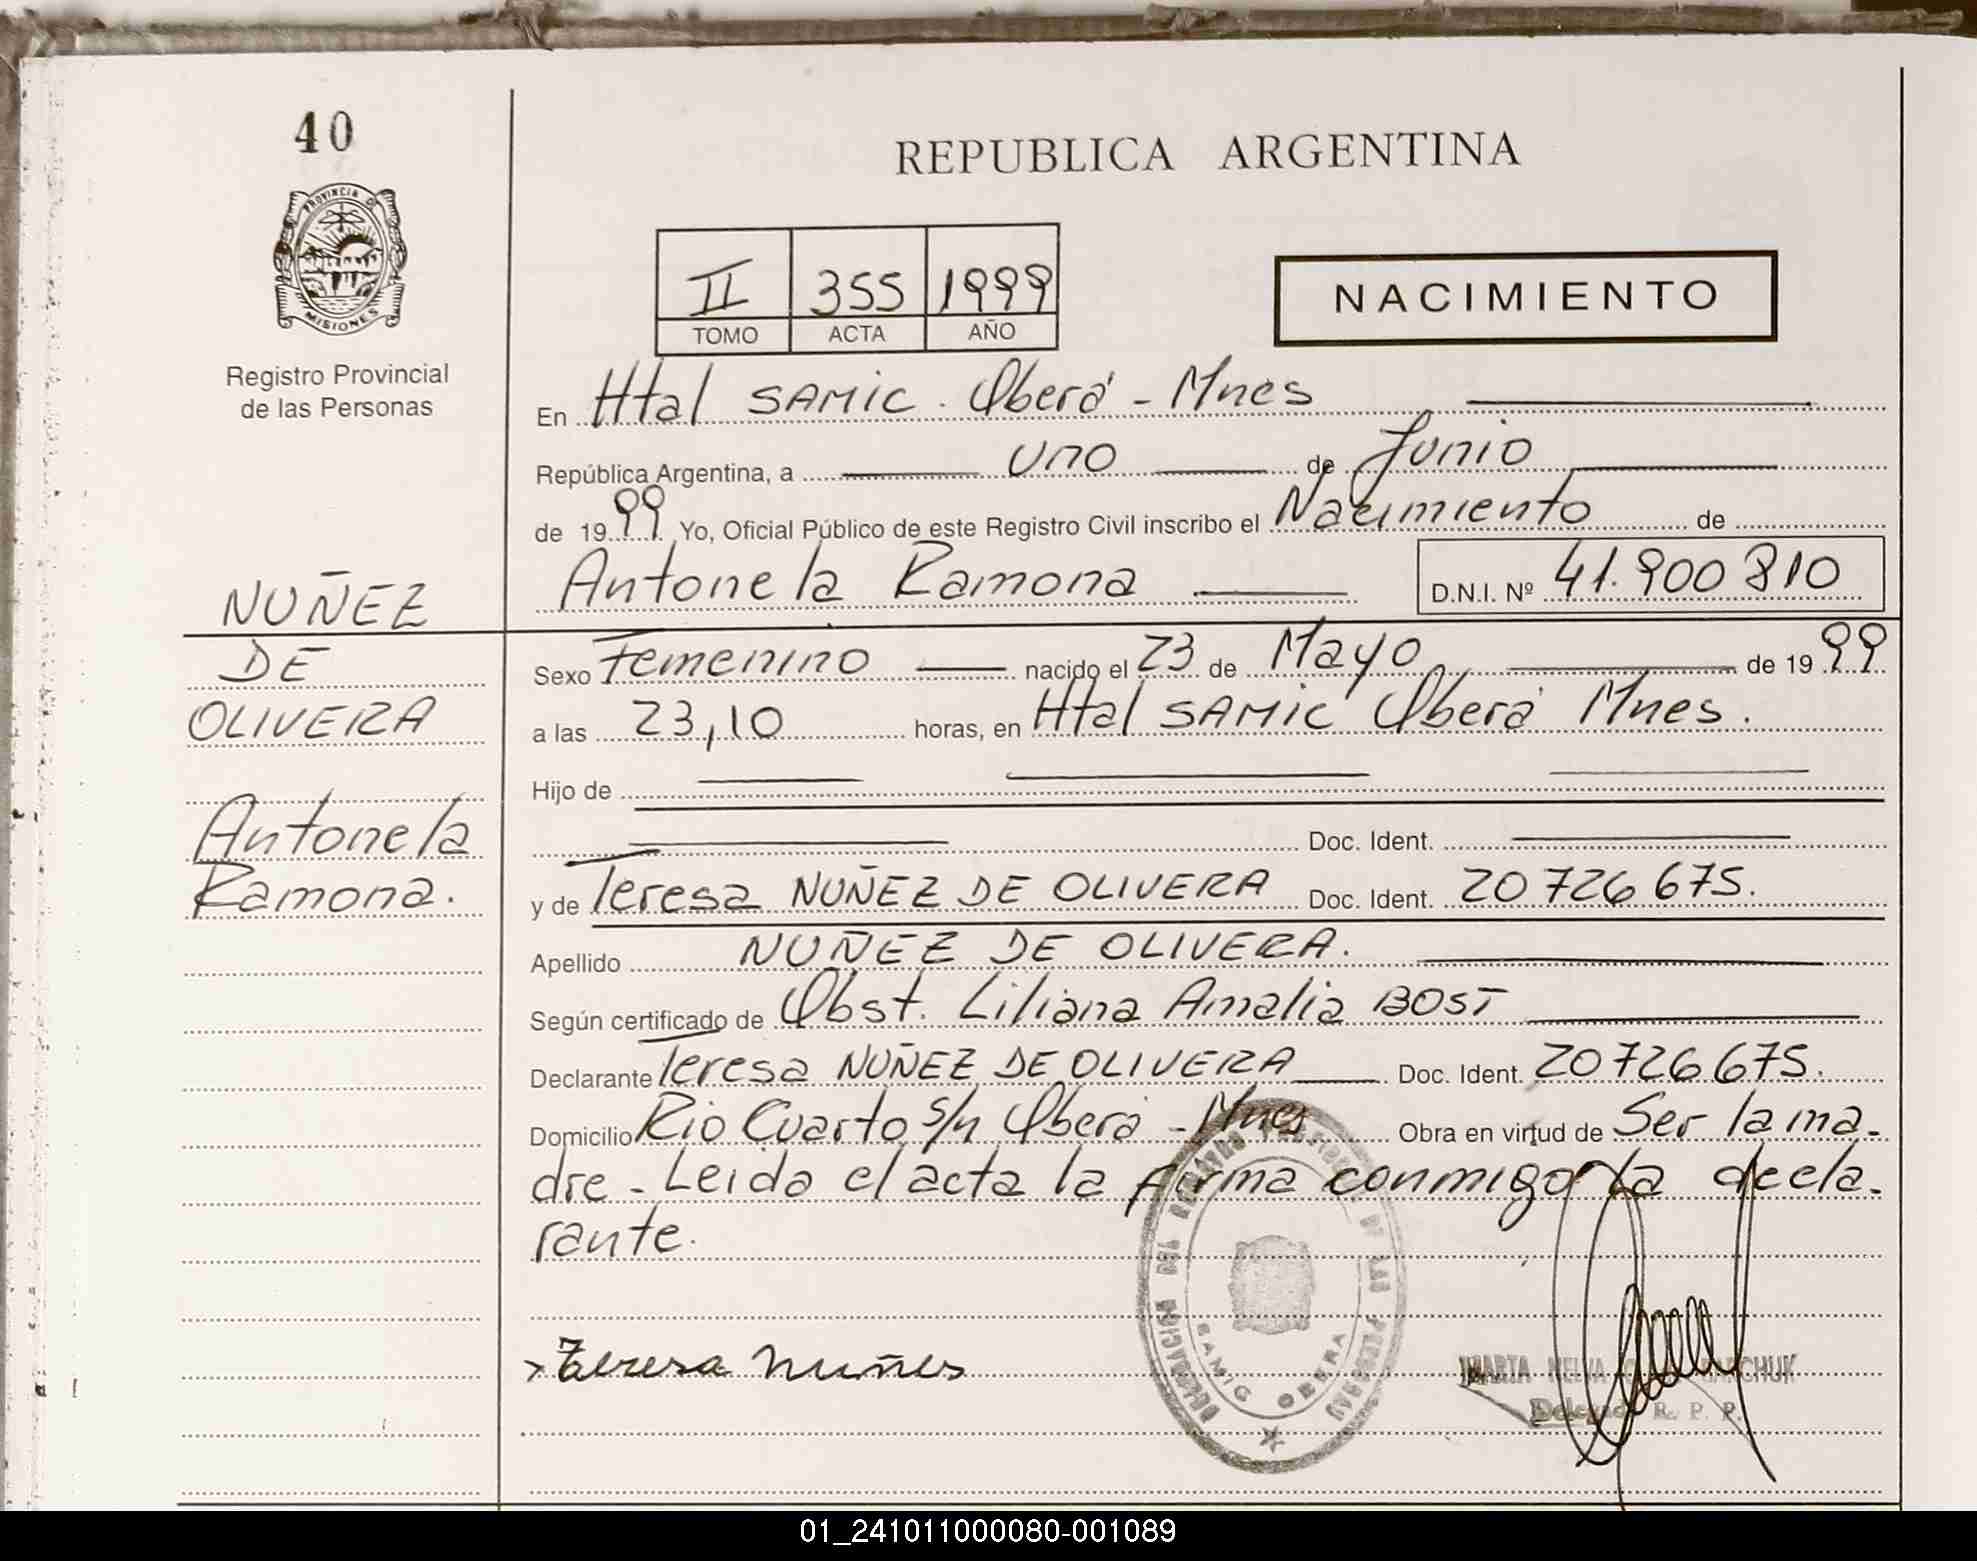 40
REPUBLICA ARGENTINA
PROVINCIA D
MISIONES
Registro Provincial
de las Personas
II 355 1999
TOMO ACTA AÑO
NACIMIENTO
En Htal SAMIC. Oberá - Mnes
República Argentina, a uno de Junio
de 1999 Yo, Oficial Público de este Registro Civil inscribo el Nacimiento de
Antonela Ramona D.N.I. Nº 41.900 810
NUÑEZ
DE
OLIVERA
Antonela
Ramona.
Sexo Femenino nacido el 23 de Mayo de 1999
a las 23,10 horas, en Htal SAMIC Oberá Mnes.
Hijo de
Doc. Ident.
y de Teresa NUÑEZ DE OLIVERA Doc. Ident. 20 726 675.
Apellido NUÑEZ DE OLIVERA.
Según certificado de Obst. Liliana Amalia BOST
Declarante Teresa NUÑEZ DE OLIVERA Doc. Ident. 20 726 675.
Domicilio Rio Cuarto s/n Oberá - Mnes Obra en virtud de Ser la ma-
dre - Leida el acta la firma conmigo la decla-
rante.
Teresa Nuñes
DELEGACION DEL REGISTRO PROVINCIAL DE LAS PERSONAS
SAMIC OBERA
MARTA NELVA
Delegada R. P. P.
01_241011000080-001089